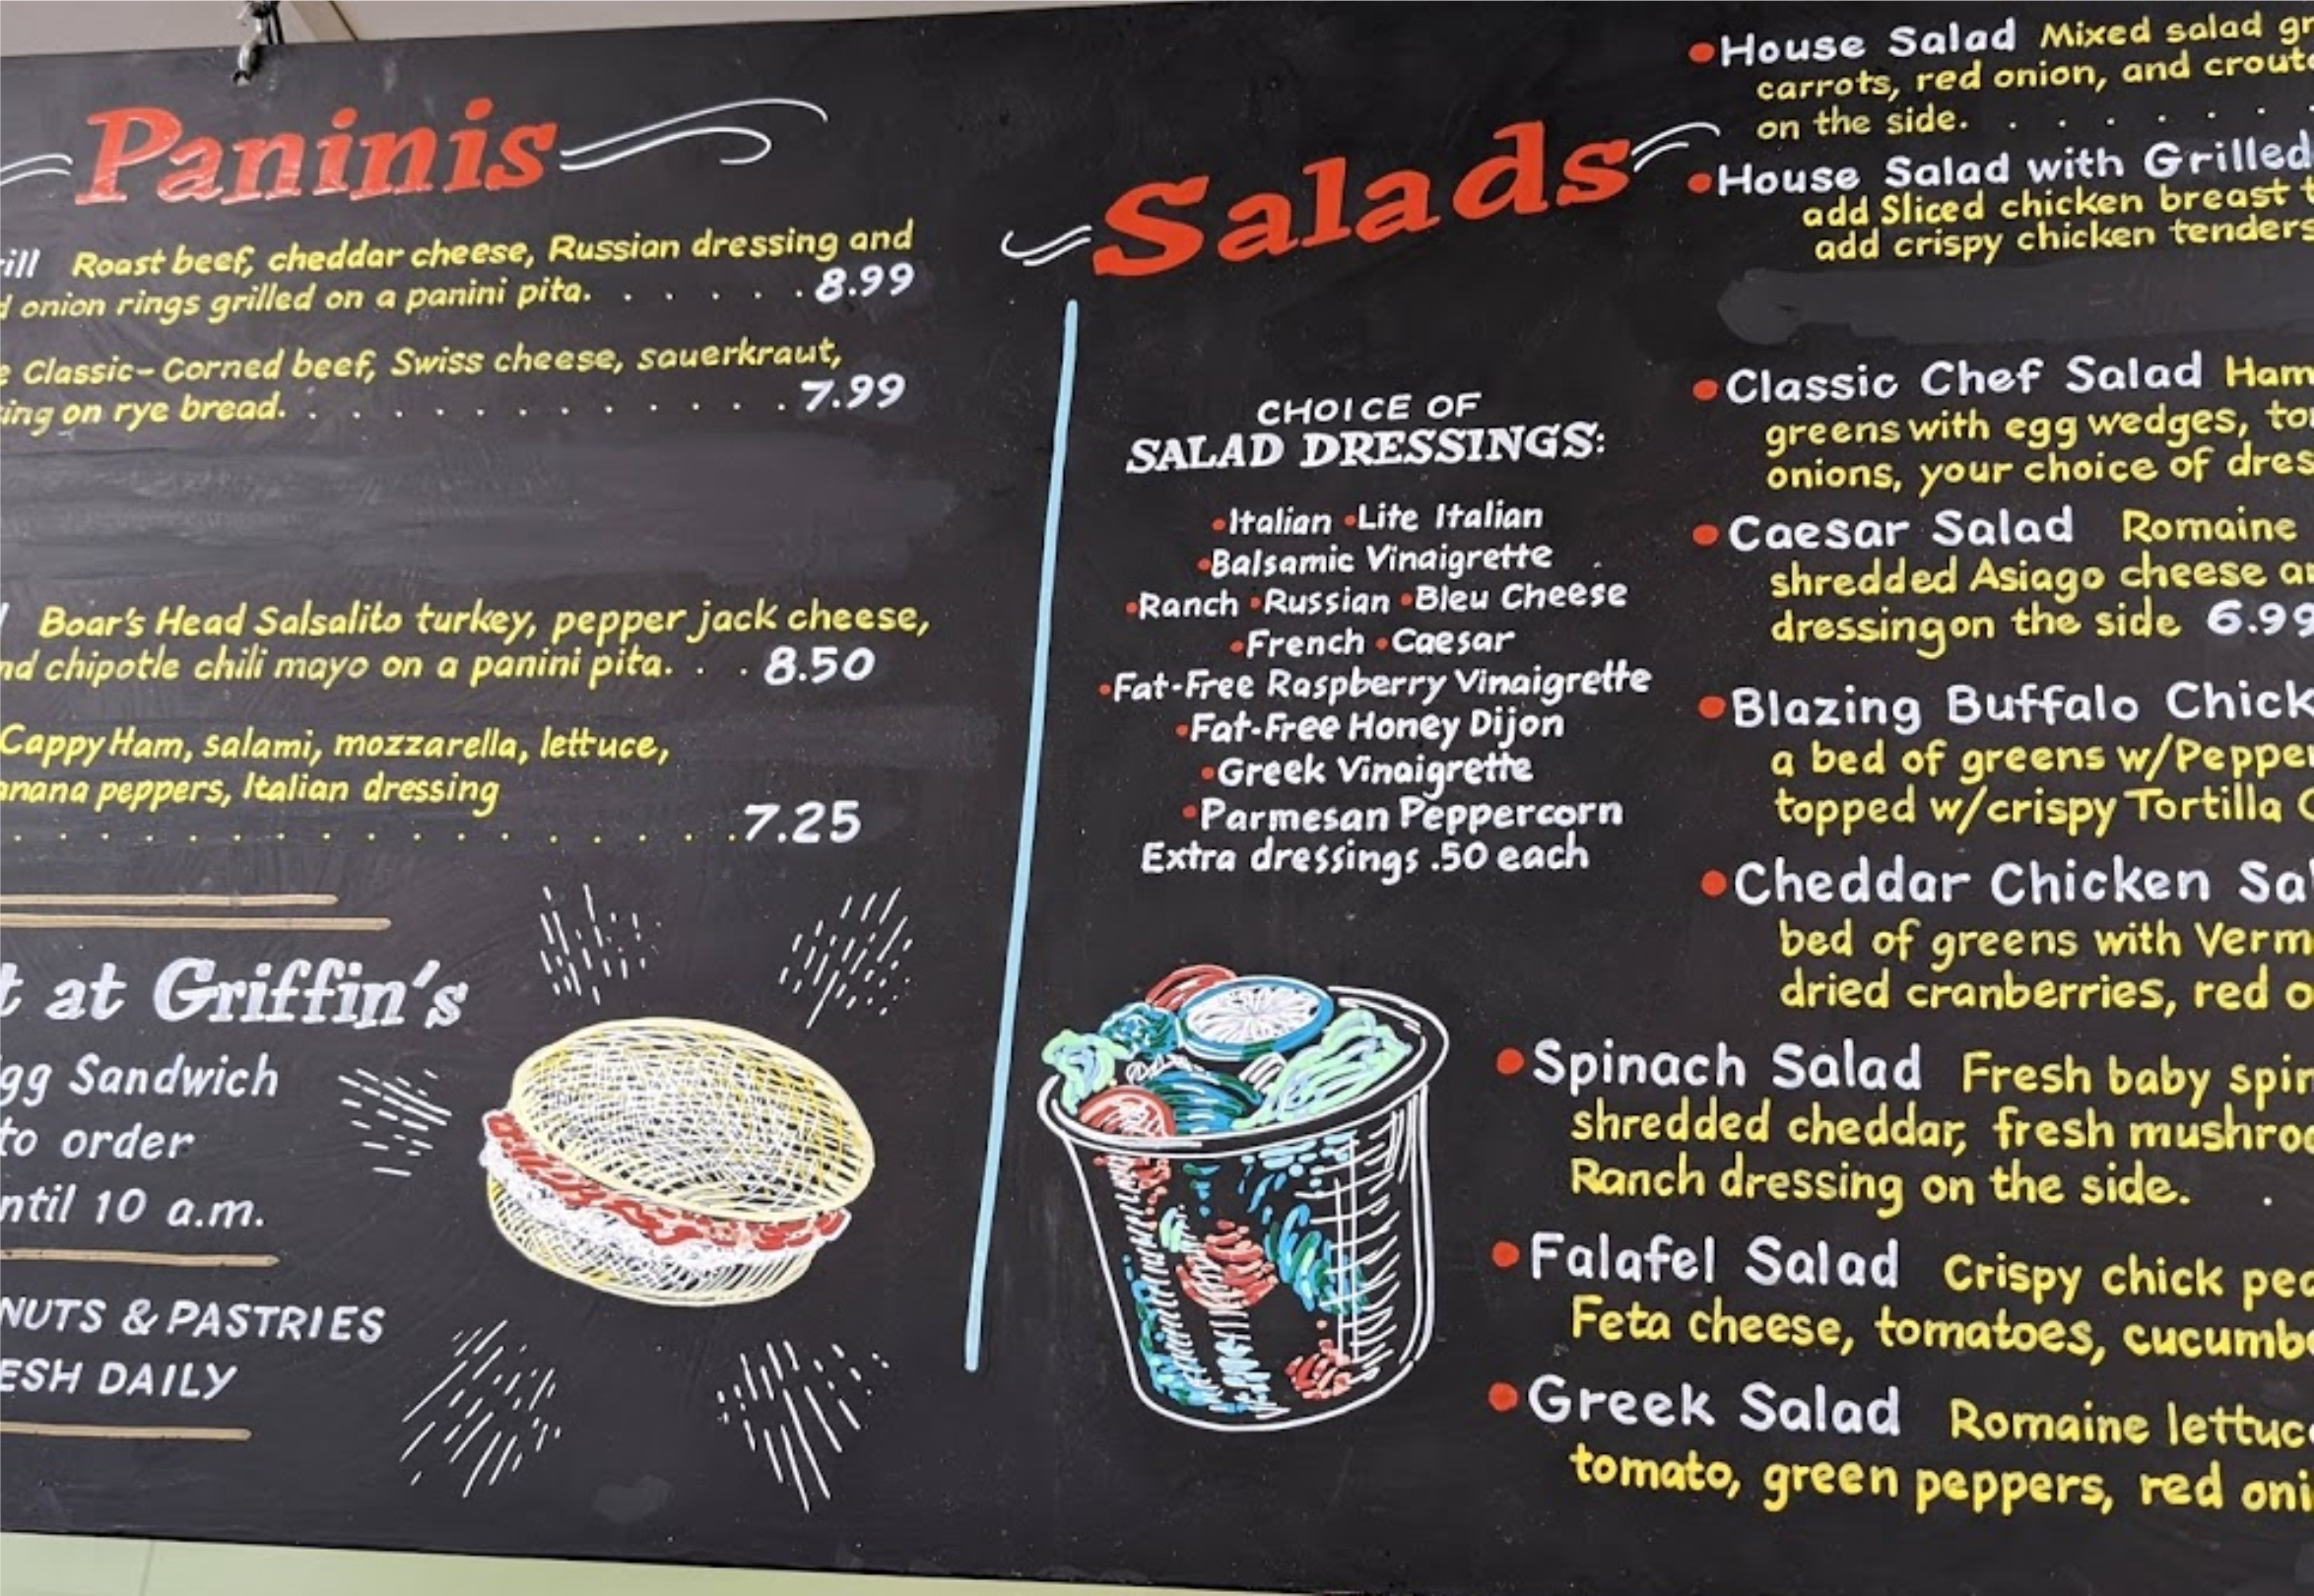 Paninis
Roast beef, cheddar cheese, Russian dressing and
onion rings grilled on a panini pita. . . . . . 8.99
Classic-Corned beef, Swiss cheese, sauerkraut,
on rye bread. . . . . . . . . . . . . . 7.99
Boar's Head Salsalito turkey, pepper jack cheese,
chipotle chili mayo on a panini pita. . . 8.50
Cappy Ham, salami, mozzarella, lettuce,
peppers, Italian dressing
7.25
at Griffin's
Sandwich
to order
10 a.m.
& PASTRIES
DAILY
Salads
CHOICE OF
SALAD DRESSINGS:
•Italian •Lite Italian
•Balsamic Vinaigrette
•Ranch •Russian •Bleu Cheese
•French •Caesar
•Fat-Free Raspberry Vinaigrette
•Fat-Free Honey Dijon
•Greek Vinaigrette
•Parmesan Peppercorn
Extra dressings .50 each
•House Salad Mixed salad
carrots, red onion, and
on the side. . . . . . . .
•House Salad with Grilled
add Sliced chicken breast
add crispy chicken tenders
•Classic Chef Salad Ham
greens with egg wedges,
onions, your choice of
•Caesar Salad Romaine
shredded Asiago cheese
dressing on the side 6.99
•Blazing Buffalo
a bed of greens w/
topped w/crispy Tortilla
•Cheddar Chicken
bed of greens with
dried cranberries, red
•Spinach Salad Fresh baby
shredded cheddar, fresh
Ranch dressing on the side. .
•Falafel Salad Crispy chick
Feta cheese, tomatoes,
•Greek Salad Romaine
tomato, green peppers, red